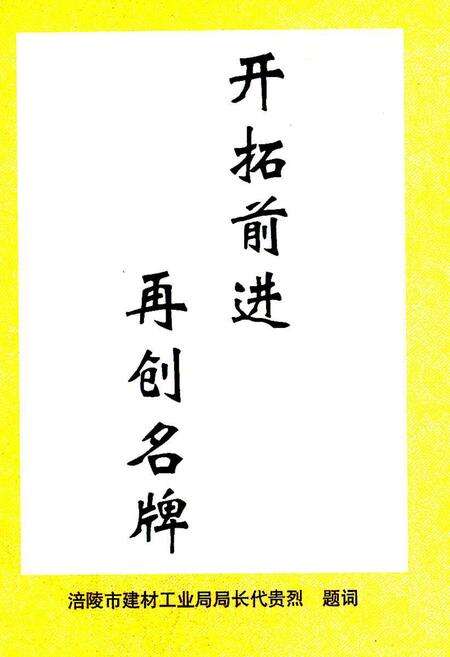 开拓前进
再创名牌
涪陵市建材工业局局长代贵烈 题词